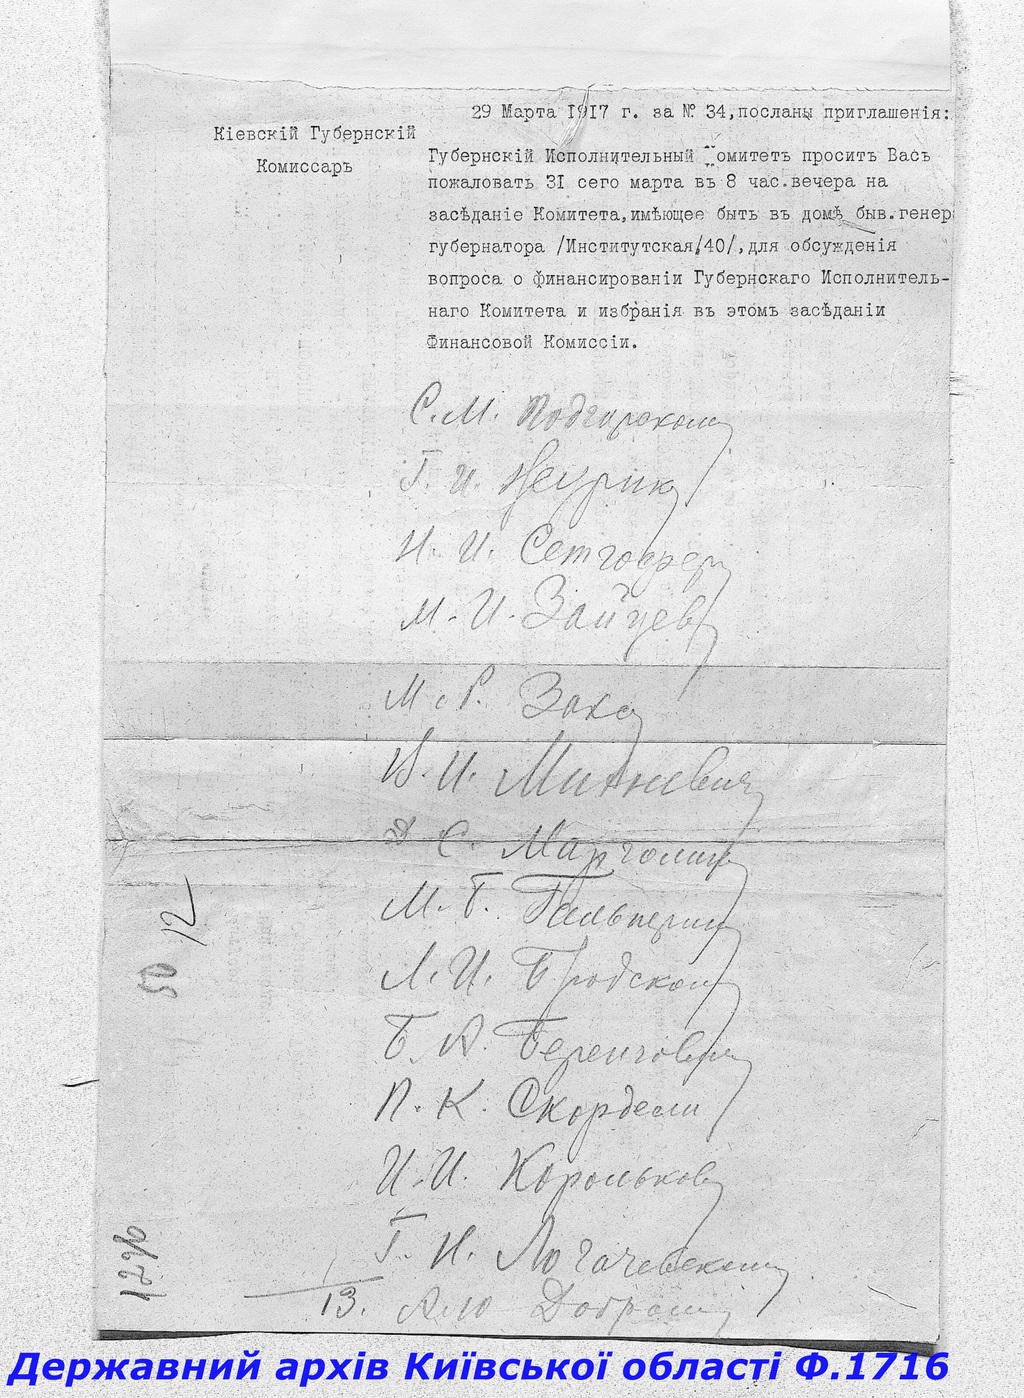 29 Марта 1917 г. за № 34, посланы приглашенія:
Кіевскій Губернскій
Комиссаръ
Губернскій Исполнительный Комитетъ проситъ Васъ
пожаловать 31 сего марта въ 8 час. вечера на
засѣданіе Комитета, имѣющее быть въ домѣ быв. генер
губернатора /Институтская, 40/, для обсужденія
вопроса о финансированіи Губернскаго Исполнитель-
наго Комитета и избранія въ этомъ засѣданіи
Финансовой Комиссіи.
С. М. Подгорскому
Г. И.
Н. И. Сетгоферу
М. И. Зайцеву
М. Р. Заксу
В. И. Минкевичу
Д С. Марголину
М. Б. Гальперину
Л. И. Бродскому
Б. А. Беренговичу
П. К. Скордели
И. И. Королькову
Г. Н. Логачевскому
13. Доброму
12
50
Державний архів Київської області Ф.1716